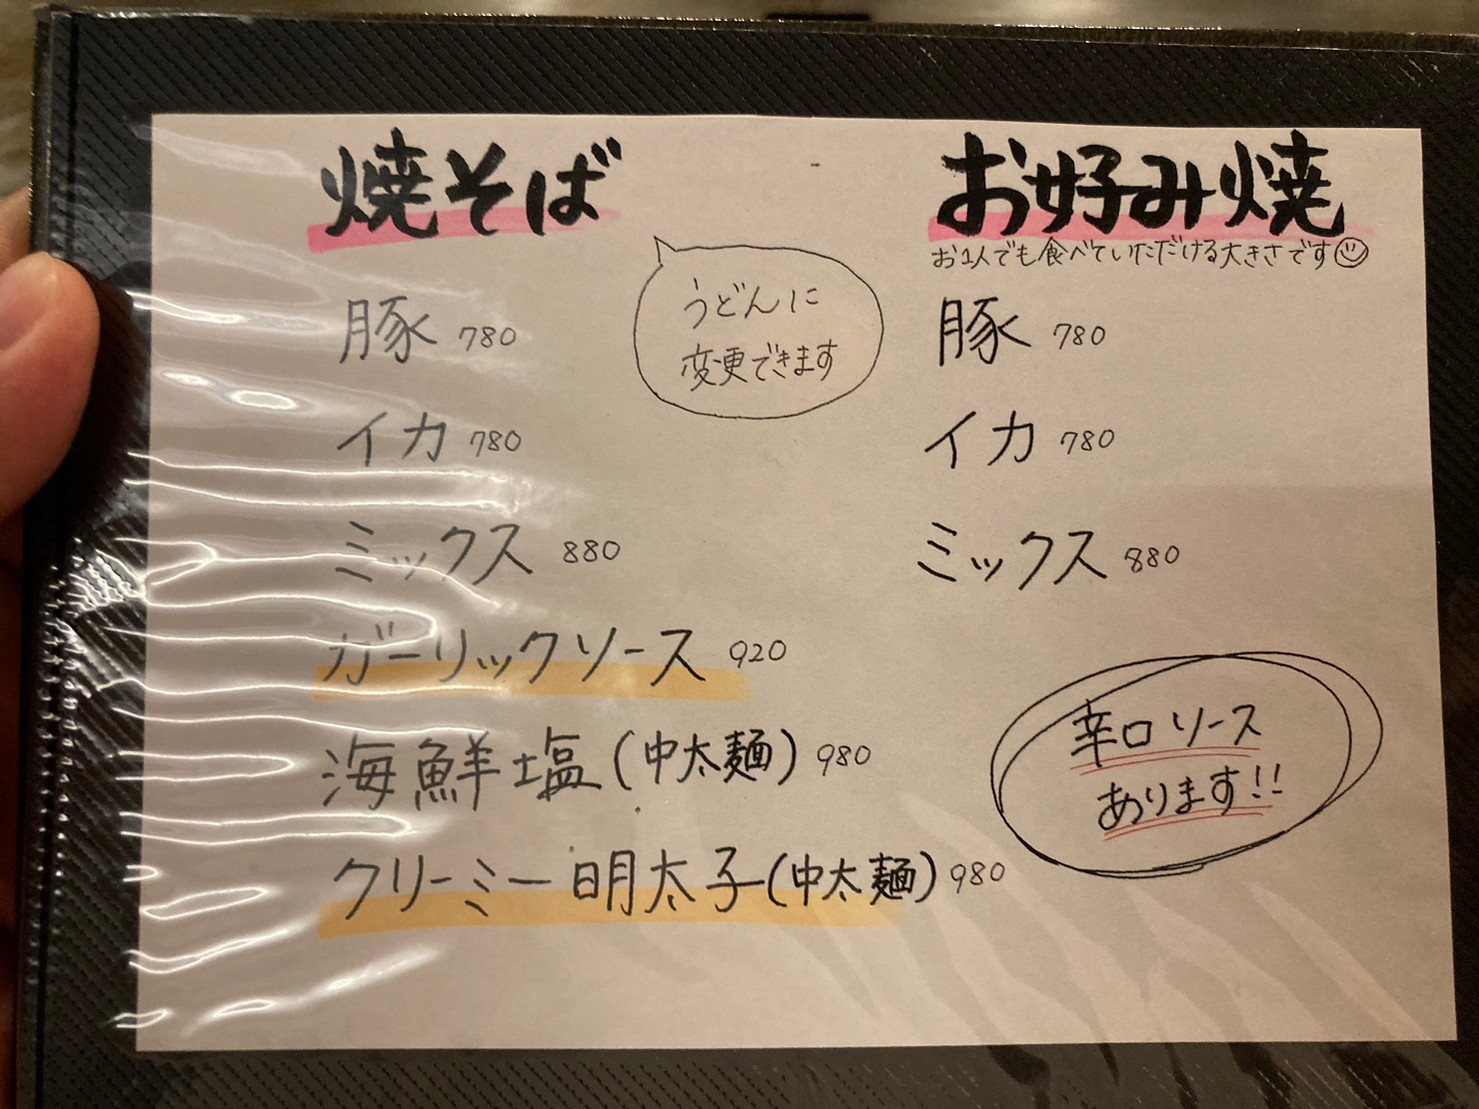 焼そば
豚 780
イカ 780
ミックス 880
ガーリックソース 920
海鮮塩(中太麺) 980
クリーミー明太子(中太麺) 980
うどんに
変更できます
お好み焼
お1人でも食べていただける大きさです
豚 780
イカ 780
ミックス 880
辛口ソース
あります!!